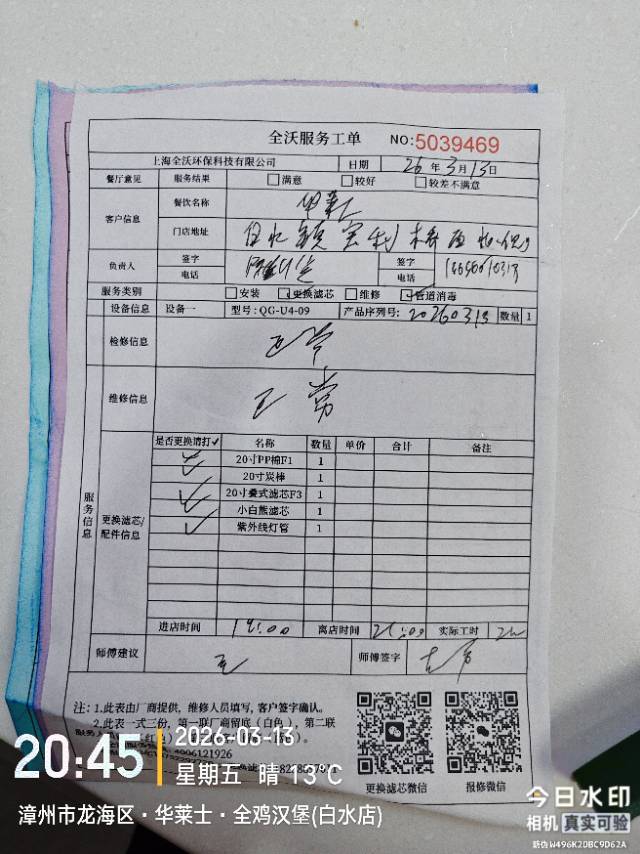 全沃服务工单 NO:5039469
上海全沃环保科技有限公司 日期 26年3月13日
餐厅意见 服务结果 满意 较好 较差不满意
客户信息 餐饮名称 华莱士
门店地址 白水镇
负责人 签字 签字
电话 电话
服务类别 安装 更换滤芯 维修 管道消毒
设备信息 设备一 型号:QG-U4-09 产品序列号: 20260313 数量 1
检修信息 正常
维修信息 正常
服务信息
更换滤芯/配件信息
是否更换请打✓ 名称 数量 单价 合计 备注
20寸PP棉F1 1
20寸炭棒 1
20寸叠式滤芯F3 1
小白熊滤芯 1
紫外线灯管 1
进店时间 19:00 离店时间 21:00 实际工时 2h
师傅建议 无 师傅签字
注:1.此表由厂商提供,维修人员填写,客户签字确认。
2.此表一式三份,第一联厂商留底(白色),第二联
更换滤芯微信 报修微信
20:45 2026-03-13
星期五 晴 13℃
漳州市龙海区·华莱士·全鸡汉堡(白水店)
今日水印
相机 真实可验
防伪 W496K2DBC9D62A